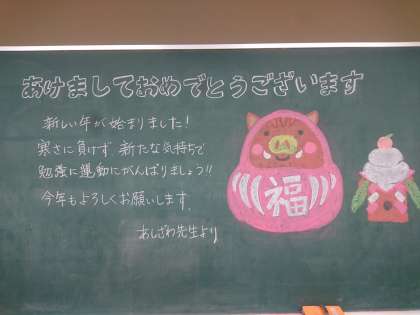 あけましておめでとうございます
新しい年が始まりました!
寒さに負けず 新たな気持ちで
勉強に運動にがんばりましょう!!
今年もよろしくお願いします。
あしざわ先生より
福